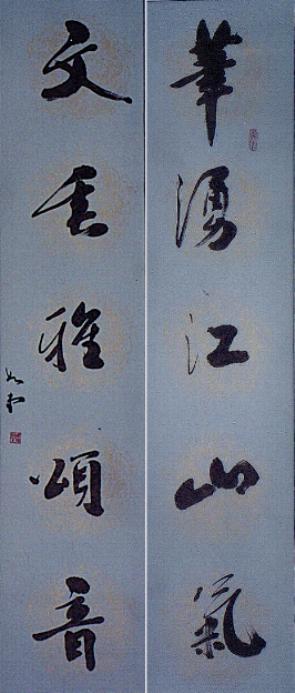 筆湧江山氣
文垂雅頌音